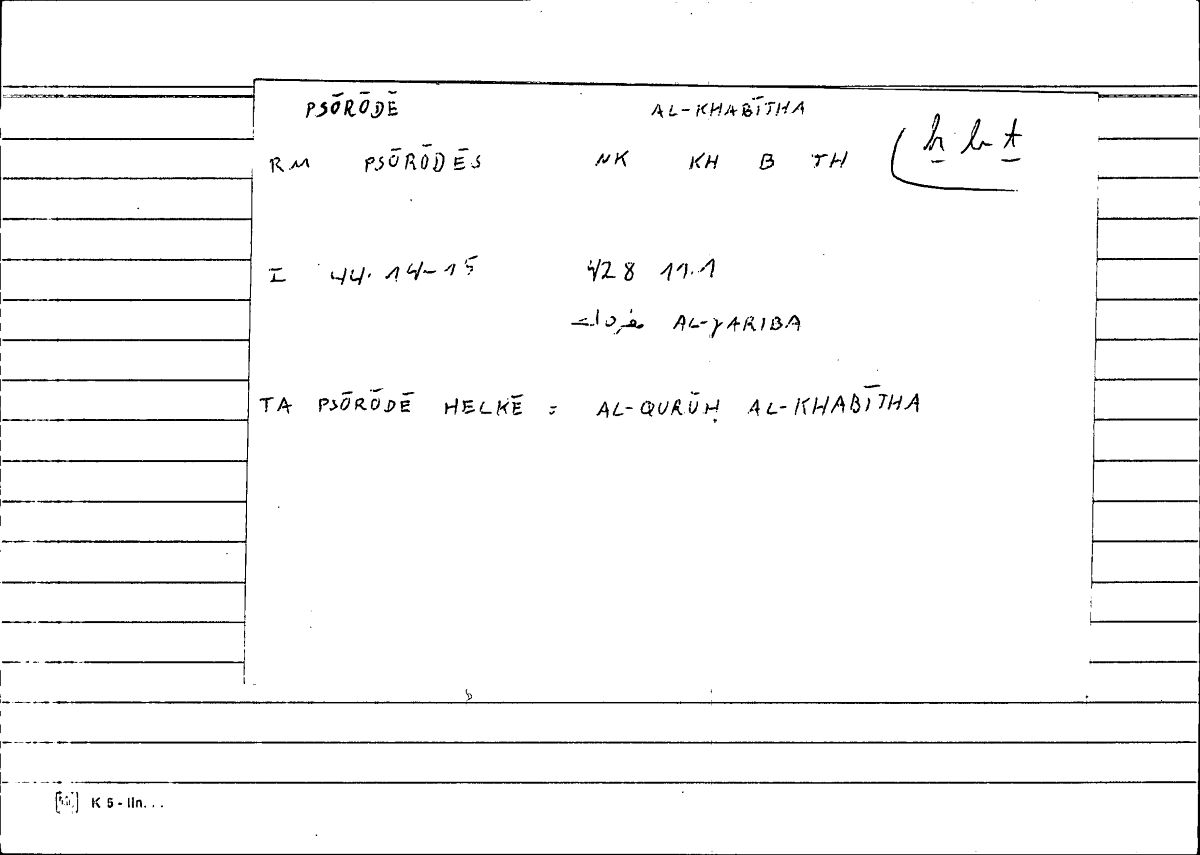 PSŌRŌDĒ AL-KHABĪTHA
RM PSŌRŌDĒS NK KH B TH ẖ b ṯ
I 44. 14-15 428 11.1
مفردات AL-γARIBA
TA PSŌRŌDĒ HELKĒ = AL-QURŪḤ AL-KHABĪTHA
K 5 - lIn. . .